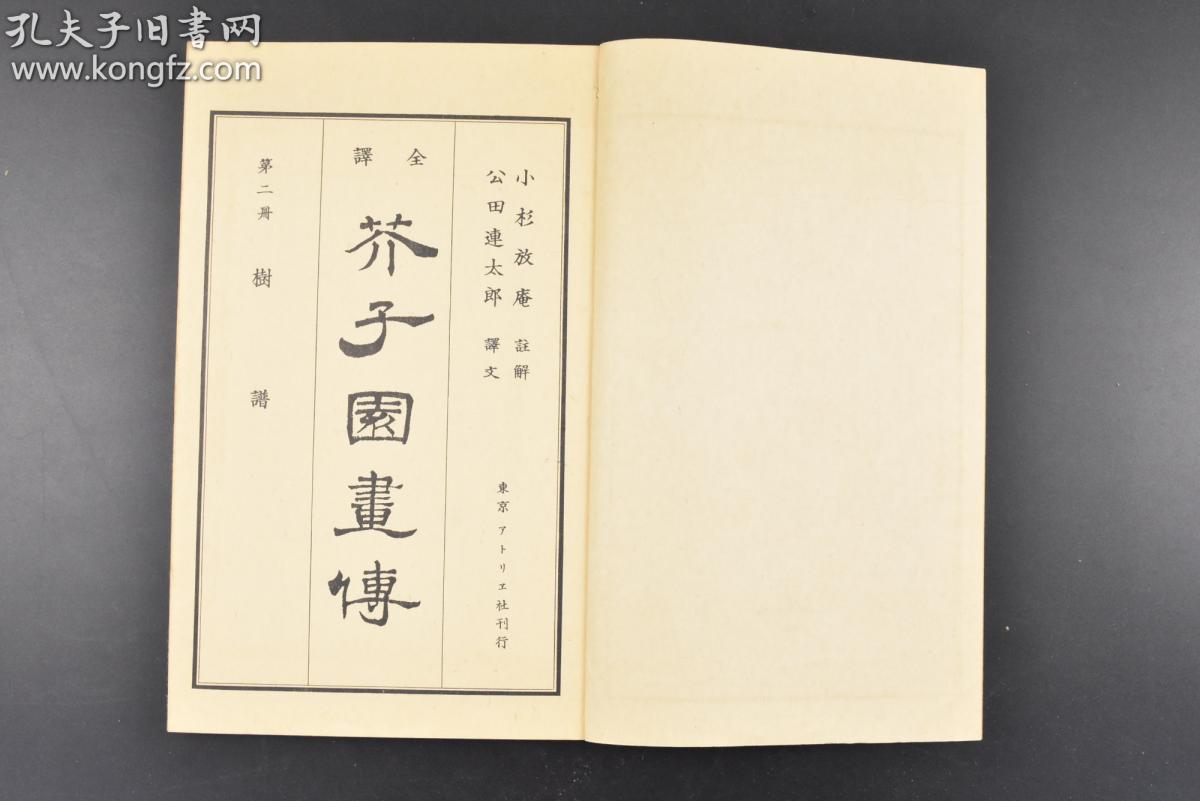 孔夫子旧书网
www.kongfz.com
小杉放庵 註解
公田連太郎 譯文
東京 アトリヱ社刊行
全譯
芥子園畫傳
第二冊 樹譜